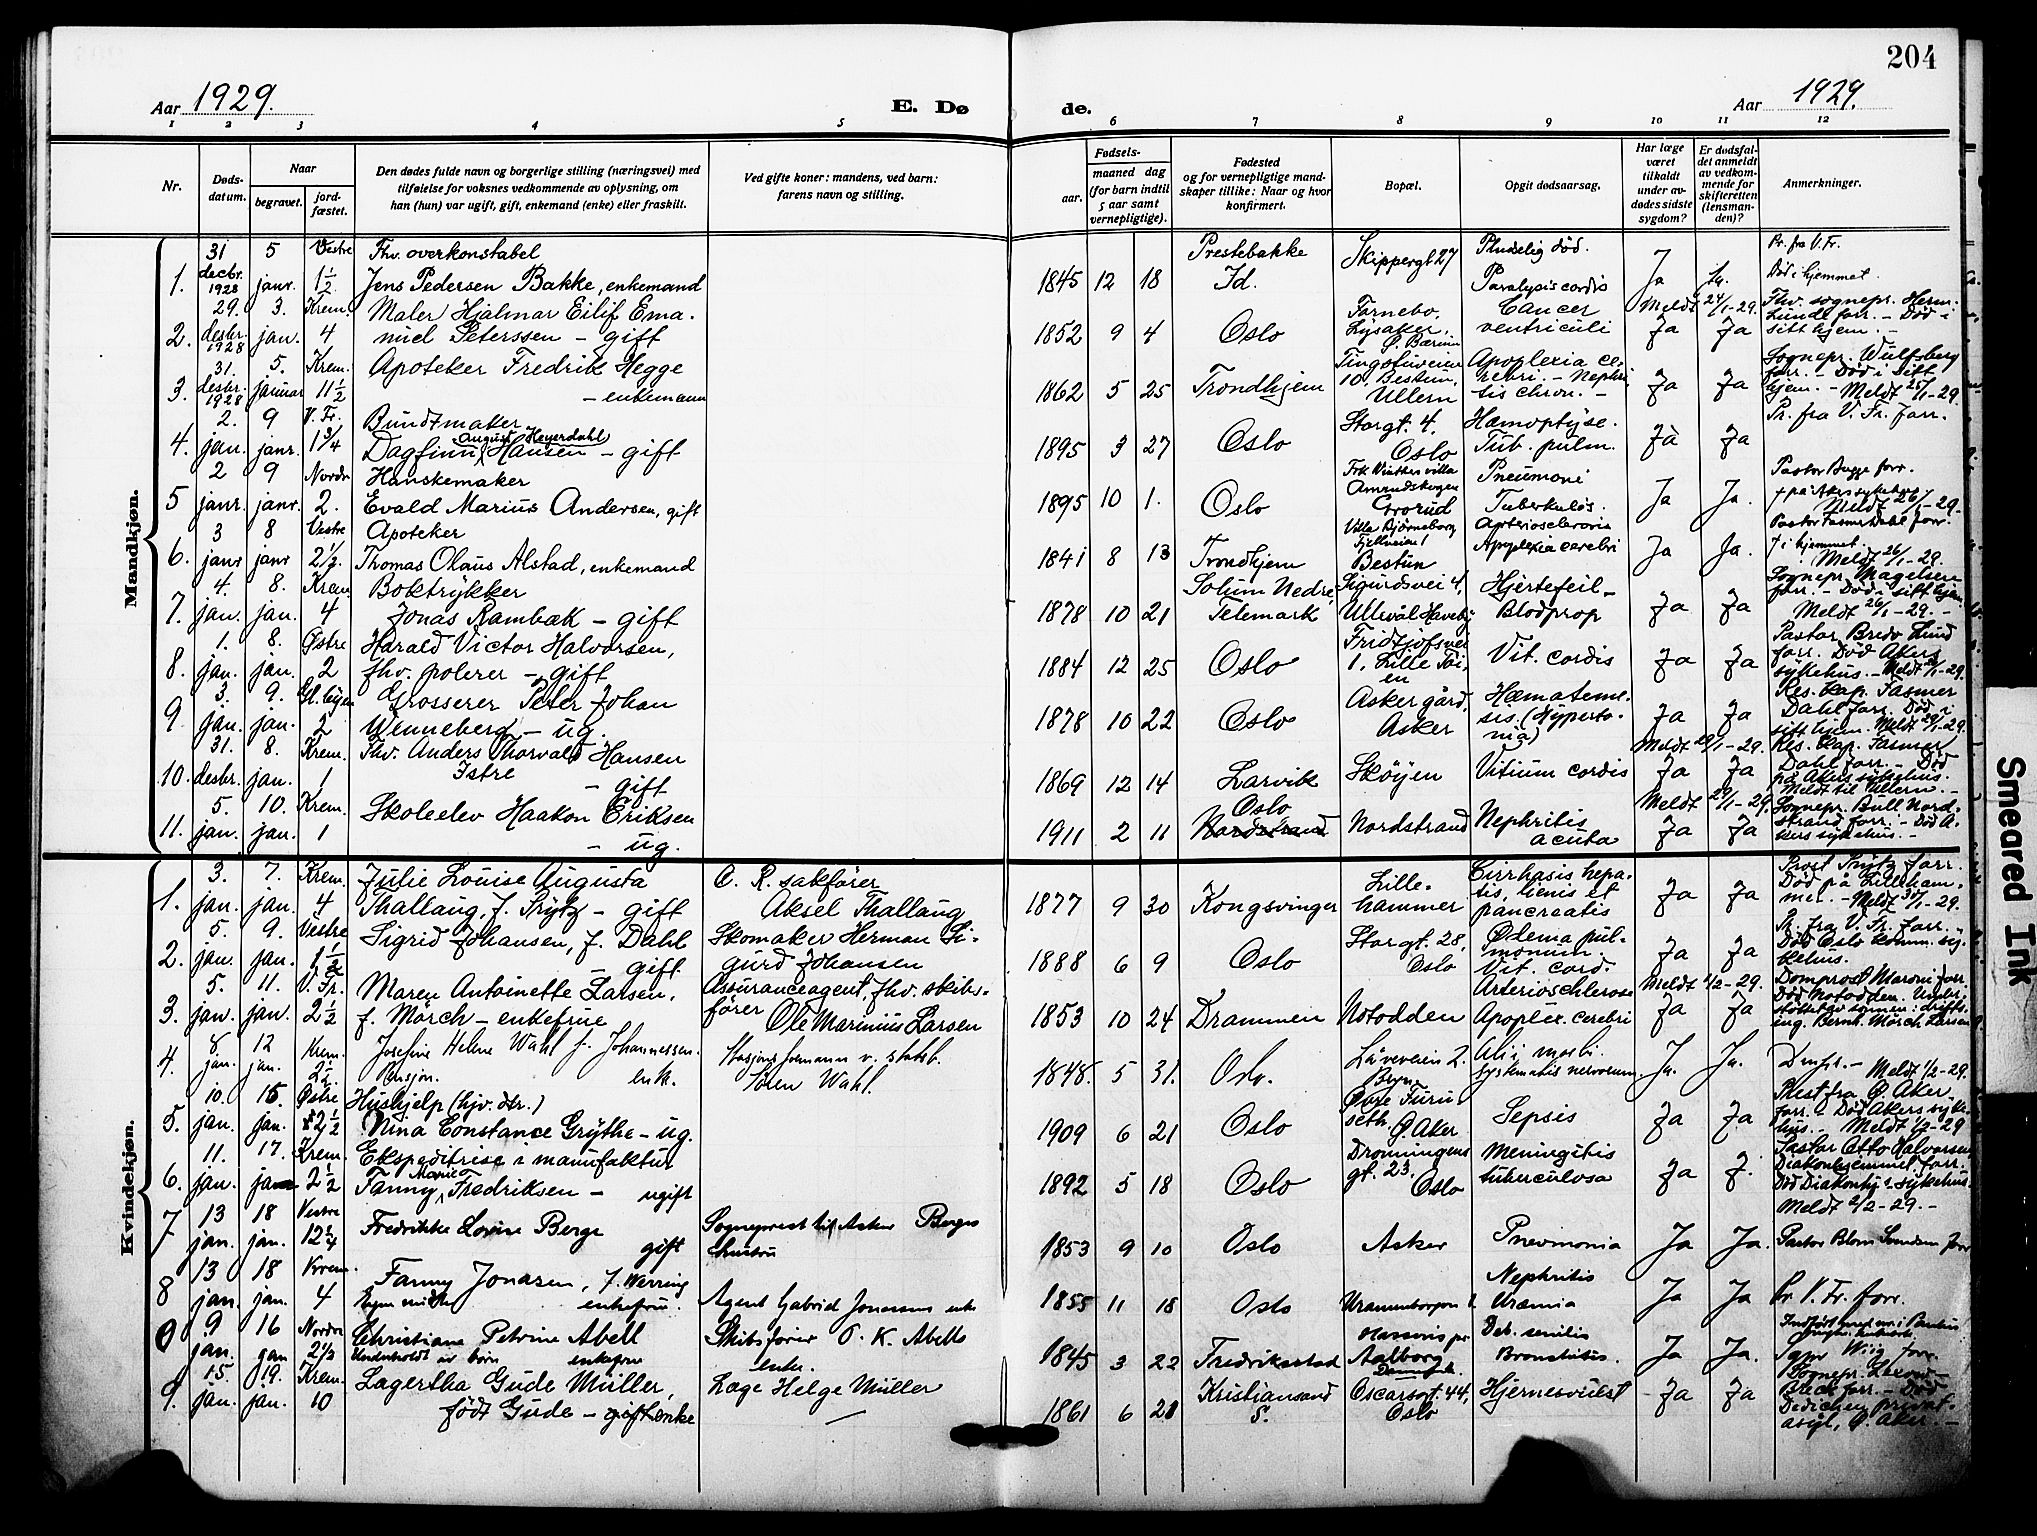 204
Aar 1929.
E. Dø
de.
Aar 1929.
1 2 3 4 5 6 7 8 9 10 11 12
Nr.
Døds-
datum.
Naar
begravet.
jord-
fæstet.
Den dødes fulde navn og borgerlige stilling (næringsvei) med
tilføielse for voksnes vedkommende av oplysning, om
han (hun) var ugift, gift, enkemand (enke) eller fraskilt.
Ved gifte koner: mandens, ved barn:
farens navn og stilling.
Fødsels-
aar.
maaned dag
(for barn indtil
5 aar samt
vernepligtige).
Fødested
og for vernepligtige mand-
skaper tillike: Naar og hvor
konfirmert.
Bopæl.
Opgit dødsaarsag.
Har læge
været
tilkaldt
under av-
dødes sidste
sygdom?
Er dødsfal-
det anmeldt
av vedkom-
mende for
skifteretten
(lensman-
den)?
Anmerkninger.
Mandkjøn.
31 5 Vestre Thv. overkonstabel Prestebakke Skippergt 27 Pludelig død. J Pr. fra V. Fr.
1. decbr. 1928 janr. 1 1/2 Jens Pedersen Bakke, enkemand 1845 12 18 Id. Paralysis cordis Ja Død i hjemmet.
29. 3. Krem. Maler Hjalmar Eilif Ema- Fornebo, Cancer Meldt 24/1-29. Thv. sognepr. Herm.
2. desbr. 1928 jan. 4 nuel Peterssen - gift 1852 9 4 Oslo Lysaker, Ø. Bærum ventriculi Ja Ja Lunde forr. - Død i sitt hjem. -
31. 5. Krem. Apoteker Fredrik Hegge Tingstuveien Apoplexia ce- Sognepr. Wulfsberg
3. desbr. 1928 januar 11 1/2 - enkemann 1862 5 25 Trondhjem 10, Bestum, Ullern rebri. - Nephri tis chron. - Ja Ja forr. - Død i sitt hjem. - Meldt 25/1-29.
2. 9 V. Fr. Bundtmaker Storgt. 4, Hæmoptyse. Pr. fra V. Fr. forr.
4. jan. janr. 1 3/4 Dagfinn August Heyerdahl Hansen - gift 1895 3 27 Oslo Oslo Tub. pulm. Ja Ja
2 9 Nordre Hanskemaker Pneumoni Pastor Bugge forr.
5 janr. janr. 2. Evald Marius Andersen, gift 1895 10 1. Oslo Amrudskogen Grorud Tuberkuløs. Ja Ja. † på Aker sykehus Meldt 26/1-29.
3 8 Vestre Apoteker Villa Bjørneborg Arteriosclerosis Pastor Fasmer Dahl forr.
6. janr janr 2 1/2. Thomas Olaus Alstad, enkemand 1841 8 13 Trondhjem Fjellveien 1 Bestun Apoplexia cerebri Ja Ja. † i hjemmet. Meldt 26/1-29.
4. 8. Krem. Boktrykker Solum Nedre Sigurdsvei 4, Hjertefeil- Sognepr. Magelssen
7. jan. jan. 4 Jonas Rambæk - gift 1878 10 21 Telemark Ullevål Haveby Blodprop Ja Ja forr. - Død i sitt hjem. Meldt 26/1-29. -
1. 8. Østre Harald Victor Halvorsen, Fridtjofsvei Pastor Bredo Lund
8. jan. jan. 2 fhv. polerer - gift 1884 12 25 Oslo 1, Lille Tøi en Vit. cordis Ja Ja forr. Død Akers sykehus. - Meldt 29/1-29.
3. 9. Gl. byen Grosserer Peter Johan Asker gård, Hæmateme- Res. kap. Fasmer
9 jan. jan. 2 Wenneberg - ug. 1878 10 22 Oslo Asker sis. (Hyperto- nia) Ja Ja Dahl forr. Død i sitt hjem. Meldt 29/1-29.
31. 8. Krem. Thv. Anders Thorvald Hansen Meldt 29/1-29. Res. kap. Fasmer
10. desbr. jan. 1 Istre - gift 1869 12 14 Larvik Skøyen Vitium cordis Ja Ja Dahl forr. - Død på Akers sykehus. Meldt til Ullern. -
5. 10. Krem. Skoleelev Haakon Eriksen Oslo Meldt 29/1-29. Sognepr. Bull Nord-
11. jan. jan. 1 - ug. 1911 2 11 Nordstrand Nordstrand Nephritis acuta Ja Ja strand forr. - Død A- kers sykehus. -
Kvindekjøn.
3. 7. Krem. Julie Louise Augusta O. R. sakfører Lille- Cirrhosis hepa- Prost Frytz forr.
1. jan. jan. 4 Thallaug, f. Frytz - gift Aksel Thallaug 1877 9 30 Kongsvinger hammer tis, lienis et pancreatis Ja Ja Død på Lilleham- mer. - Meldt 30/1-29.
5. 9. Vestre Sigrid Johansen, f. Dahl Skomaker Herman Si- Storgt. 28, Ødema pul- Pr. fra V. Fr. forr. -
2. jan. jan. 1 1/2 - gift. gurd Johansen 1888 6 9 Oslo Oslo monum. Vit. cord. Ja Ja Død Oslo komm. syke- hus.
5. 11. V. Fr. Maren Antoinette Larsen, Assuranceagent, fhv. skibs- Arterioschlerose Meldt 1/2-29. Domprost Maroni forr.
3. jan. jan. 2 1/2 f. Mørch - enkefrue fører Ole Marinius Larsen 1853 10 24 Drammen Notodden Apoplex. cerebri Ja Ja Død Notodden. Under- støttet av sønnen: drifts- ing. Bernh. Mørch Larsen
8. 12 Krem. Josefine Helene Wahl f. Johannessen. Stasjonsformann v. statsb. Løveveien 2. Alii morbi
4. jan. jan. 2 1/2. Pensjon. enk. Søren Wahl. 1848. 5 31. Oslo. Bryn systematis nervorum. Ja. Ja. Dmpr. - Meldt 1/2-29.
10. 15 Østre Hushjelp (hjv. dtr.) Øvre Furu- Prest fra Ø. Aker
5. jan. jan. 2 1/2 Nina Constance Grythe - ug. 1909 6 21 Oslo seth, Ø. Aker Sepsis Ja Ja forr. - Død Akers syke- hus. - Meldt 1/2-29
11. 17. Krem. Ekspeditrise i manufaktur Dronningens Meningitis Pastor Otto Halvorsen
6. jan. jan 2 1/2 Fanny Marie Fredriksen - ugift 1892 5 18 Oslo gt. 23. Oslo tuberculosa Ja J. Diakonhjemmet forr. Død Diakonhj.s sykehus. Meldt 2/2-29. -
7 13 18 Vestre
jan. jan. 12 1/4 Fredrikke Lovise Berge gift Sogneprest til Asker Berges hustru 1853 9 10 Oslo Asker Pnevmonia Ja Ja. Pastor Blom Svendsen forr
13 18 Krem. Fanny Jonasen, f. Werring Nephritis
8 jan. jan. 4 Egen midler enkefru. Agent Gabriel Jonassens enke 1855 11 18 Oslo Uranienborgvn Uræmia Ja Ja Pr V. Fr. forr.
9 16 Nordre Christiane Petrine Abell Skibsfører O. K. Abells Deb. senilis
9 jan. jan 2 1/2 Underholdt av børn enkefrue enke. 1845 3 22 Fredriksstad Aalborg Danmark. Bronchitis. Ja Ja. Wiig forr.
15. 19. Krem. Lagertha Gude Müller, Læge Helge Müller Kristiansand Oscarsgt. 44, Hjernesvulst
9. jan. jan. 10 født Gude - gift enke 1861 6 21 S. Oslo Ja Ja forr. - Død Dedichen privat- asyl, Ø. Aker. -
Smeared Ink